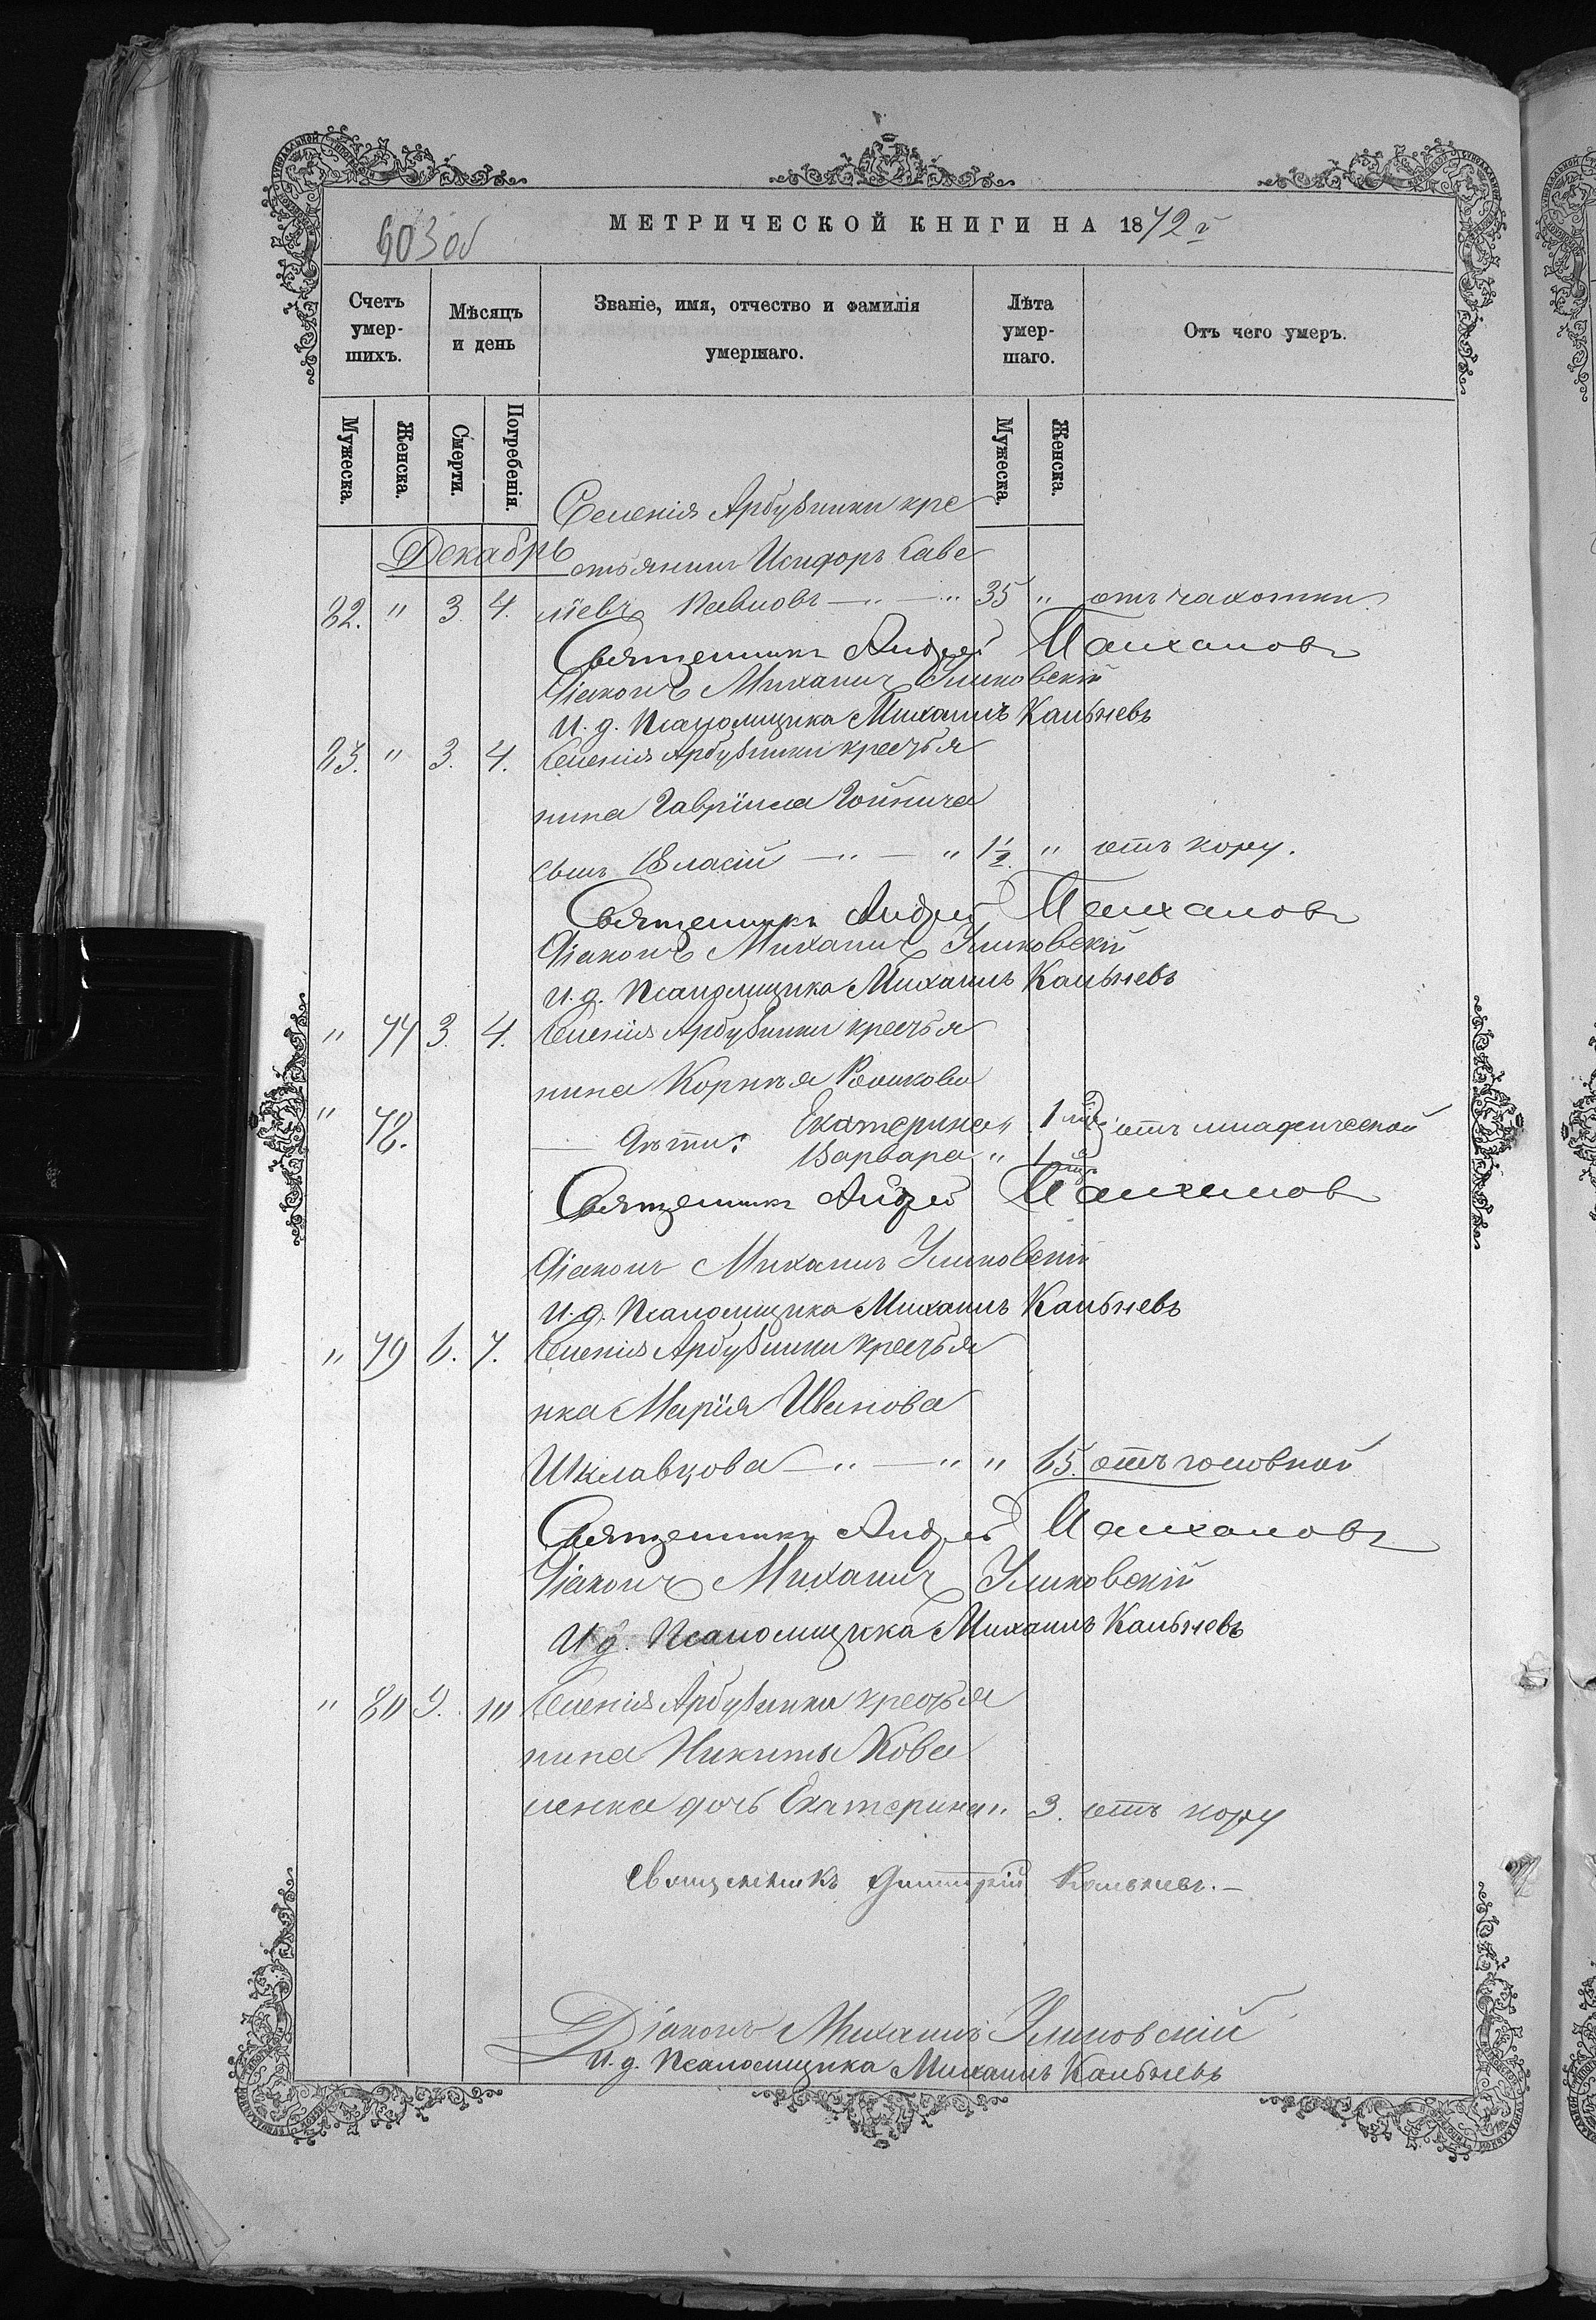 603об
МЕТРИЧЕСКОЙ КНИГИ НА 1872 г
Счетъ умер- шихъ.
Мѣсяцъ и день
Званіе, имя, отчество и фамилія умершаго.
Лѣта умер- шаго.
Отъ чего умеръ.
Мужеска. Женска. Смерти. Погребенія. Мужеска. Женска.
Селенія Арбузинки кре
Декабрь стьянинъ Исидоръ Саве
82. " 3. 4. ліевъ Павловъ — " — " 35 " отъ чахотки.
Священникъ Андрей
Діаконъ Михаилъ
И. д. Псаломщика Михаилъ Кальневъ
83. " 3. 4. Селенія Арбузинки крестья
нина Гавріила
сынъ Власій — " — " 1½. " отъ кору.
Священникъ Андрей
Діаконъ Михаилъ
И. д. Псаломщика Михаилъ Кальневъ
" 77 3. 4. Селенія Арбузинки крестья
нина Корнѣя
" 78. — дѣти: Екатерина " 1 отъ младенческой
Варвара " 1
Священникъ Андрей
Діаконъ Михаилъ
И. д. Псаломщика Михаилъ Кальневъ
" 79 6. 7. Селенія Арбузинки крестья
нка Марія Иванова
Шклавцова — " — " " 65. отъ головной
Священникъ Андрей
Діаконъ Михаилъ
И. д. Псаломщика Михаилъ Кальневъ
" 80 9. 10 Селенія Арбузинки крестья
нина Никиты Кова
ленка дочь Екатерина " 3. отъ кору
Священникъ Димитрій Кальневъ. —
Діаконъ Михаилъ
И. д. Псаломщика Михаилъ Кальневъ